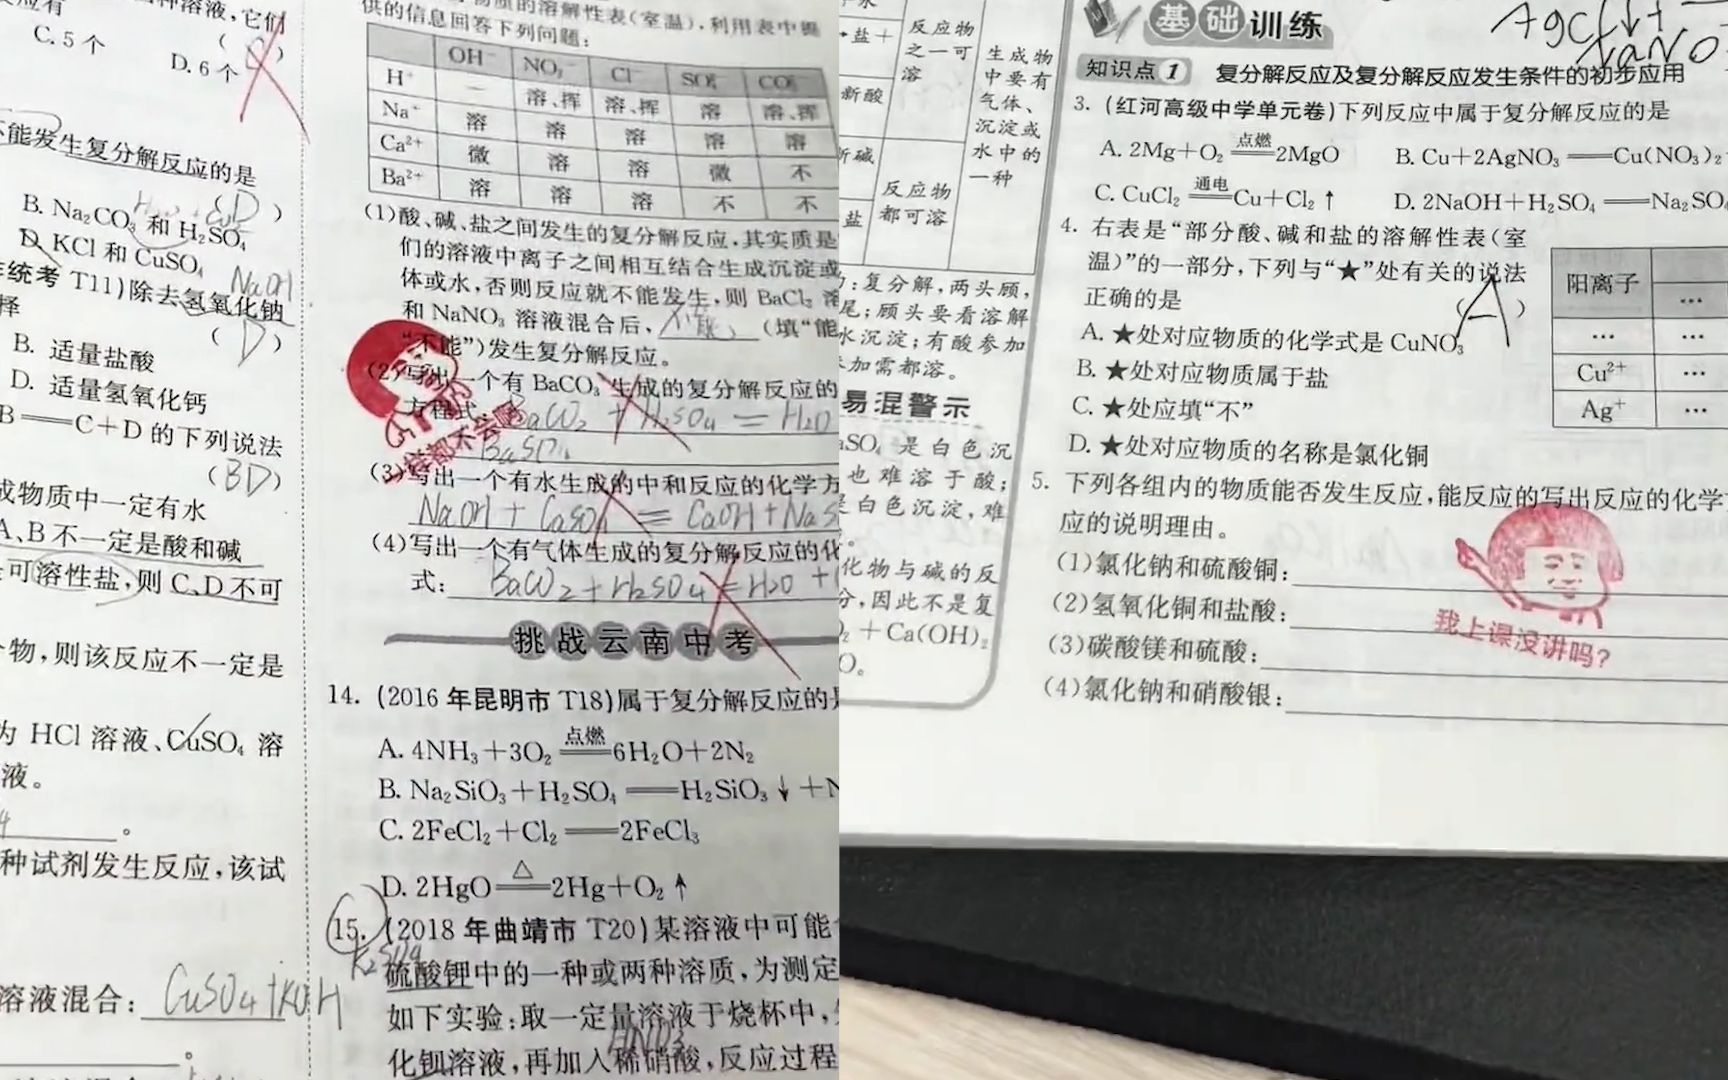 C. 5 个
D. 6 个
不能发生复分解反应的是
B. Na₂CO₃ 和 H₂SO₄
D. KCl 和 CuSO₄
NaOH
统考 T11)除去氢氧化钠
择
(D)
B. 适量盐酸
D. 适量氢氧化钙
B══C+D 的下列说法
(BD)
成物质中一定有水
A、B 不一定是酸和碱
可溶性盐,则 C、D 不可
物,则该反应不一定是
为 HCl 溶液、CuSO₄ 溶
液。
种试剂发生反应,该试
溶液混合: CuSO4+KOH
物质的溶解性表(室温),利用表中提
供的信息回答下列问题:
OH⁻ NO₃⁻ Cl⁻ SO₄²⁻ CO₃²⁻
H⁺ — 溶、挥 溶、挥 溶 溶、挥
Na⁺ 溶 溶 溶 溶 溶
Ca²⁺ 微 溶 溶 微 不
Ba²⁺ 溶 溶 溶 不 不
(1)酸、碱、盐之间发生的复分解反应,其实质是
们的溶液中离子之间相互结合生成沉淀或
体或水,否则反应就不能发生,则 BaCl₂ 溶
和 NaNO₃ 溶液混合后, 不能 (填“能
“不能”)发生复分解反应。
(2)写出一个有 BaCO₃ 生成的复分解反应的
方程式: BaCO2 + H2SO4 = H2O
(3)写出一个有水生成的中和反应的化学方
NaOH + CaSO4 = CaOH + NaS
(4)写出一个有气体生成的复分解反应的化
式: BaCO2 + H2SO4 = H2O +
挑战云南中考
14. (2016 年昆明市 T18)属于复分解反应的是
A. 4NH₃+3O₂ 点燃══ 6H₂O+2N₂
B. Na₂SiO₃+H₂SO₄══H₂SiO₃↓+N
C. 2FeCl₂+Cl₂══2FeCl₃
D. 2HgO △══ 2Hg+O₂↑
15. (2018 年曲靖市 T20)某溶液中可能
K2SO4
硫酸钾中的一种或两种溶质,为测定
如下实验:取一定量溶液于烧杯中,
HNO3
化钡溶液,再加入稀硝酸,反应过程
盐+
反应物
之一可
溶
新酸
生成物
中要有
气体、
沉淀或
水中的
一种
新碱
盐
反应物
都可溶
:复分解,两头顾,
尾;顾头要看溶解
水沉淀;有酸参加
加需都溶。
易混警示
aSO₄ 是白色沉
也难溶于酸;
是白色沉淀,难
化物与碱的反
分,因此不是复
₂+Ca(OH)₂
O。
AgCl↓+
NaNO
基础训练
知识点1 复分解反应及复分解反应发生条件的初步应用
3. (红河高级中学单元卷)下列反应中属于复分解反应的是
A. 2Mg+O₂ 点燃══ 2MgO B. Cu+2AgNO₃══Cu(NO₃)₂
C. CuCl₂ 通电══ Cu+Cl₂↑ D. 2NaOH+H₂SO₄══Na₂SO₄
4. 右表是“部分酸、碱和盐的溶解性表(室
温)”的一部分,下列与“★”处有关的说法
正确的是 (A)
A. ★处对应物质的化学式是 CuNO₃
B. ★处对应物质属于盐
C. ★处应填“不”
D. ★处对应物质的名称是氯化铜
阳离子
…
… …
Cu²⁺ …
Ag⁺ …
5. 下列各组内的物质能否发生反应,能反应的写出反应的化学
应的说明理由。
(1)氯化钠和硫酸铜:
(2)氢氧化铜和盐酸:
(3)碳酸镁和硫酸:
(4)氯化钠和硝酸银:
我上课没讲吗?